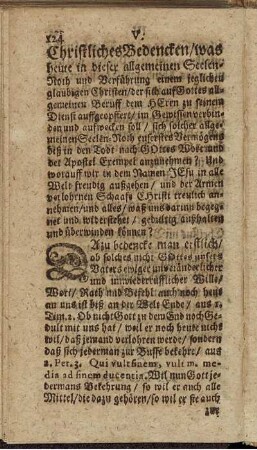 124
V.
Christliches Bedencken/was
heute in dieser allgemeinen Seelen-
Noth und Verführung einem jeglichen
glaubigen Christen/der sich auf Gottes all-
gemeinen Beruff dem HErrn zu seinem
Dienst auffgeopffert/im Gewissen verbin-
den und auffwecken soll/sich solcher allge-
meinen Seelen-Noth eusersten Vermögens
biß in den Todt nach GOttes Wort und
der Apostel Exempel anzunehmen? Und
worauff wir in dem Namen JEsu in alle
Welt freudig außgehen/und der Armen
verlohrnen Schaafe Christi treulich an-
nehmen/und alles/was uns darinn begeg-
net und widerstehet/gedultig außhalten
und überwinden können?
DAzu bedencke man erstlich/
ob solches nicht GOttes unsers
Vaters ewiger unveränderlicher
und unwiederrufflicher Wille/
Wort/Rath und Befehl auch noch heute
an uns ist biß an der Welt Ende/aus 1.
Tim. 2. Ob nicht Gott zu dem End noch Ge-
dult mit uns hat/weil er noch heute nicht
wil/daß jemand verlohren werde/sondern
daß sich jederman zur Busse bekehre/aus
2. Pet. 3. Qui vult finem, vult m. me-
dia ad finem ducentia. Wil nun Gott je-
dermans Bekehrung/so wil er auch alle
Mittel/die dazu gehören/so wil er sie auch